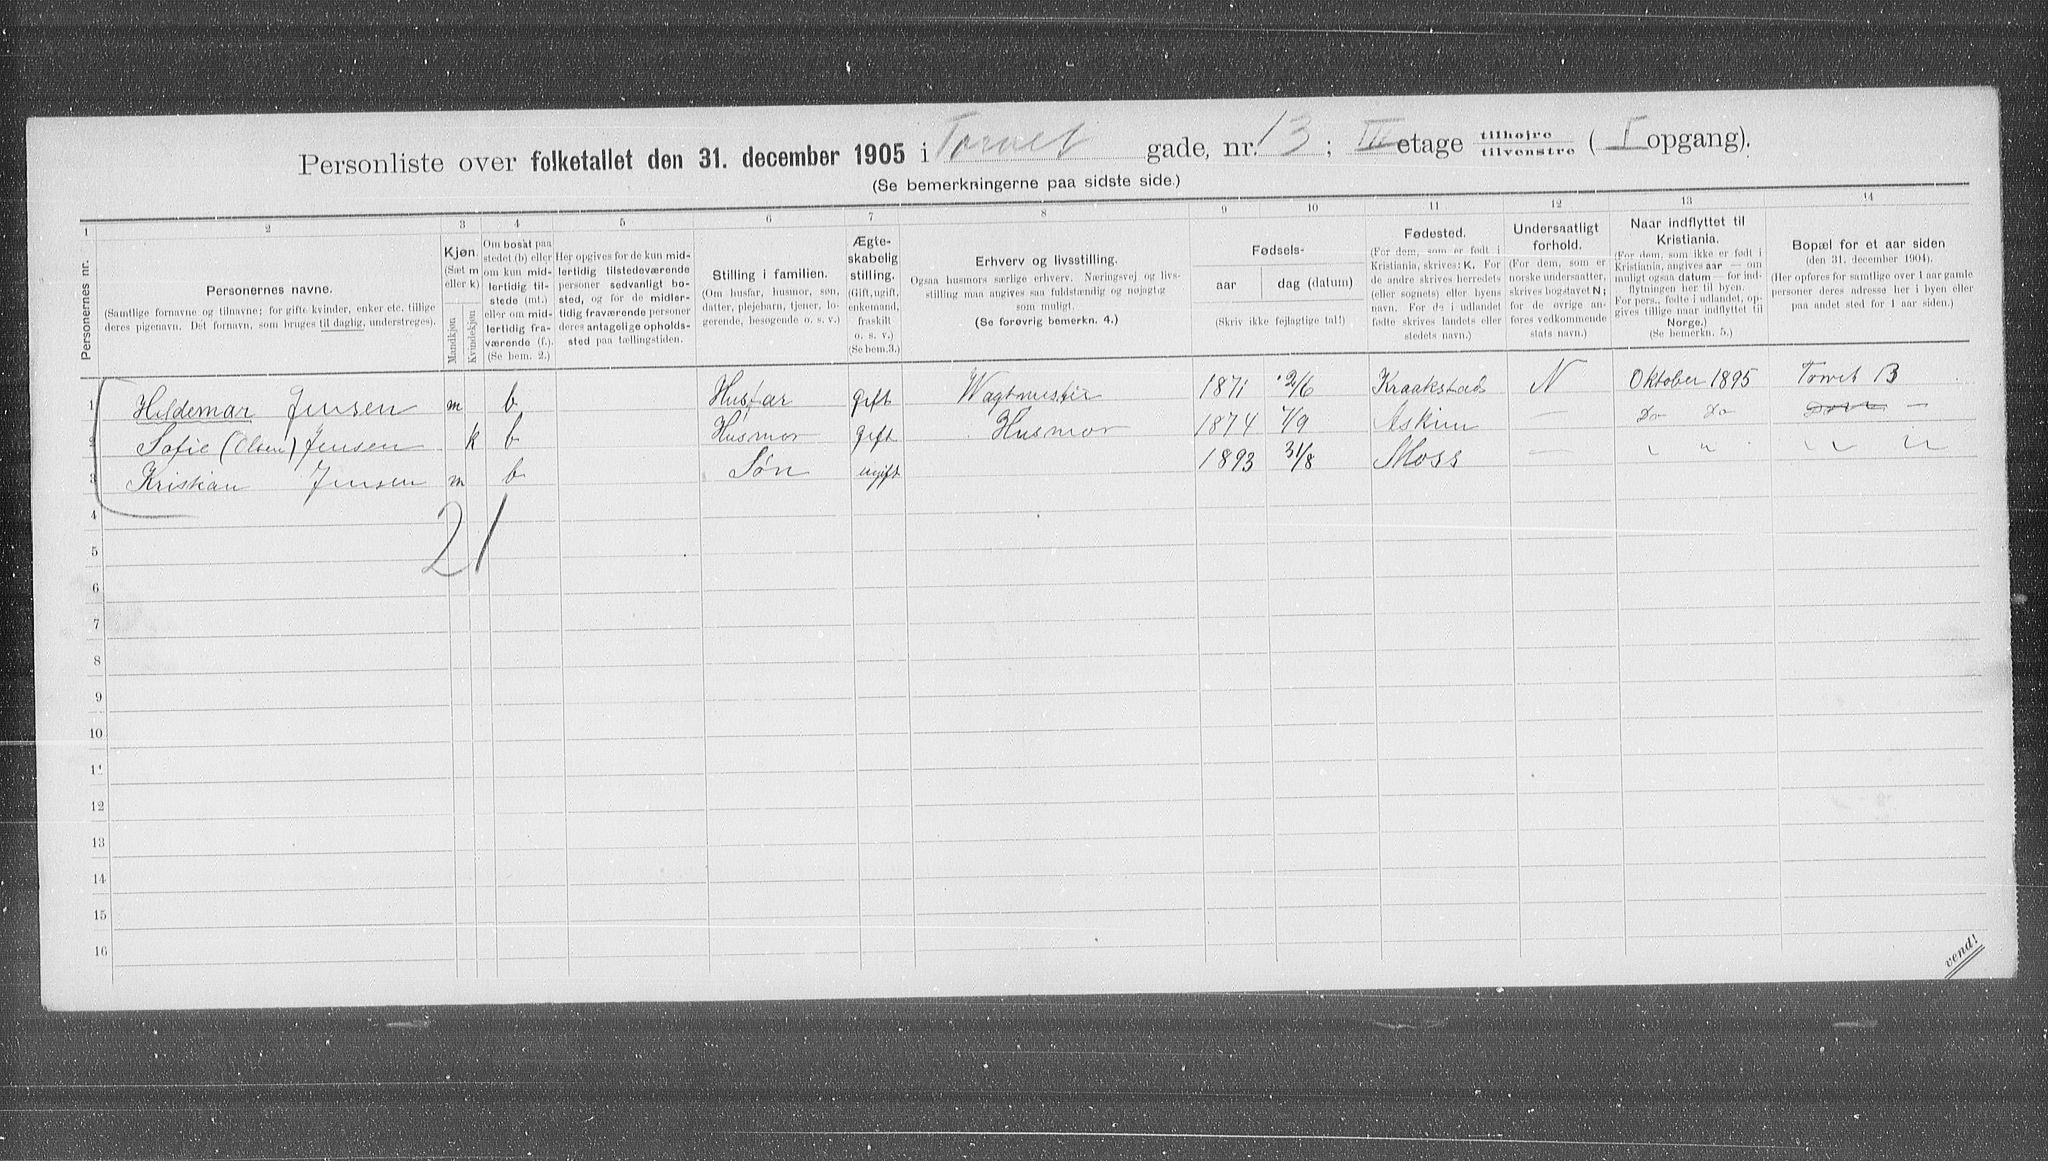 Personliste over folketallet den 31. december 1905 i Torvet gade, nr. 13; IV etage tilhøjre tilvenstre (I opgang).
(Se bemerkningerne paa sidste side.)
1 2 3 4 5 6 7 8 9 10 11 12 13 14
Personernes nr.
Personernes navne.
(Samtlige fornavne og tilnavne; for gifte kvinder, enker etc. tillige
deres pigenavn. Det fornavn, som bruges til daglig, understreges).
Kjøn.
(Sæt m
eller k)
Mandkjøn
Kvindekjøn
Om bosat paa
stedet (b) eller
om kun mid-
lertidig til-
stede (mt.)
eller om mid-
lertidig fra-
værende (f.).
(Se bem. 2.)
Her opgives for de kun mid-
lertidig tilstedeværende
personer sedvanligt bo-
sted, og for de midler-
tidig fraværende personer
deres antagelige opholds-
sted paa tællingstiden.
Stilling i familien.
(Om husfar, husmor, søn,
datter, plejebarn, tjener, lo-
gerende, besøgende o. s. v.)
Ægte-
skabelig
stilling.
(Gift, ugift,
enkemand,
fraskilt
o. s. v.)
(Se bem.3.)
Erhverv og livsstilling.
Ogsaa husmors særlige erhverv. Næringsvej og livs-
stilling maa angives saa fuldstændig og nøjagtig
som muligt.
(Se forøvrig bemerkn. 4.)
Fødsels-
aar
dag (datum)
(Skriv ikke fejlagtige tal!)
Fødested.
(For dem, som er født i
Kristiania, skrives: K. For
de andre skrives herredets
(eller sognets) eller byens
navn. For de i udlandet
fødte skrives landets eller
stedets navn.)
Undersaatligt
forhold.
(For dem, som er
norske undersaatter,
skrives bogstavet N;
for de øvrige an-
føres vedkommende
stats navn.)
Naar indflyttet til
Kristiania.
(For dem, som ikke er født i
Kristiania, angives aar — om
muligt ogsaa datum — for ind-
flytningen her til byen.
For pers., fødte i udlandet, op-
gives tillige naar indflyttet til
Norge.)
(Se bemerkn. 5.)
Bopæl for et aar siden
(den 31. december 1904).
(Her opføres for samtlige over 1 aar gamle
personer deres adresse her i byen eller
paa andet sted for 1 aar siden.)
1 Hildemar Jensen m b Husfar gift Wagtmester 1871 2/6 Kraakstad N Oktober 1895 Torvet 13
2 Sofie (Olsen) Jensen k b Husmor gift Husmor 1874 7/9 Askim — Do Do —
3 Kristian Jensen m b Søn ugift 1893 31/8 Moss — " " " "
4
2 1
5
6
7
8
9
10
11
12
13
14
15
16
vend!